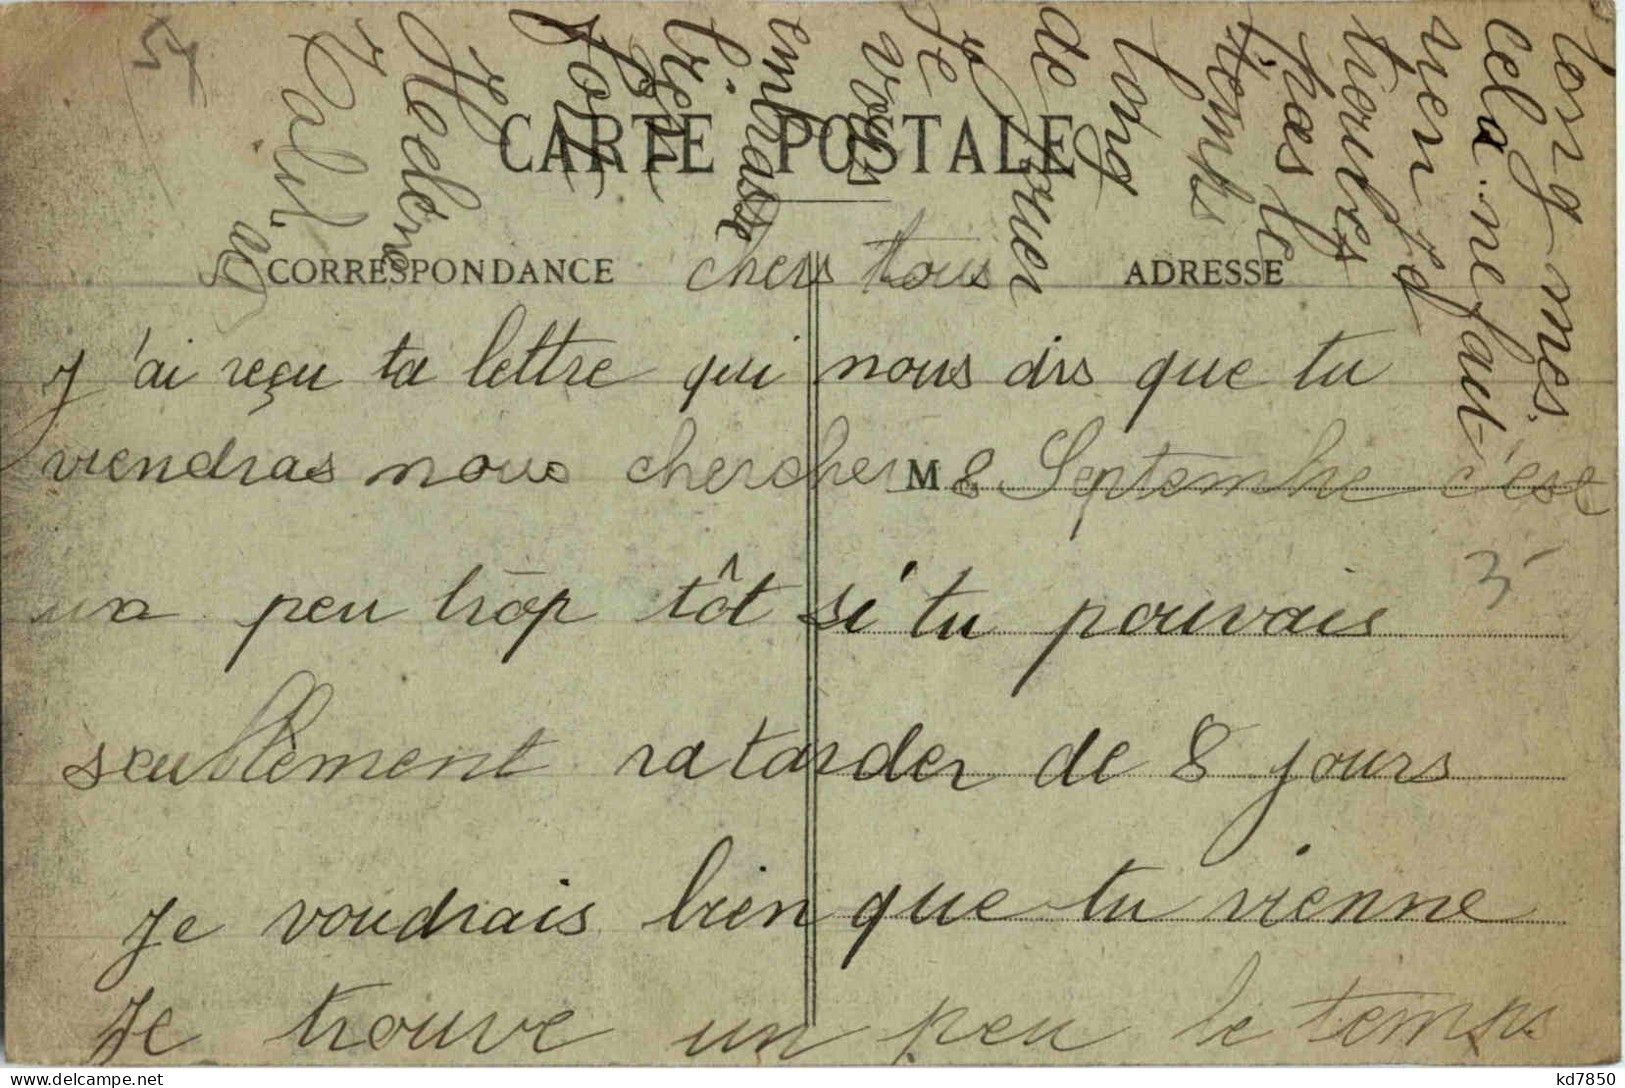 CARTE POSTALE
CORRESPONDANCE
ADRESSE
chers tous
j'ai reçu ta lettre qui nous dis que tu
viendras nous chercher 8 Septembre c'est
M
un peu trop tôt si tu pouvais
seullement ratarder de 8 jours
Je voudrais bien que tu vienne
Je trouve un peu le temps
long mes
cela ne faut
rien
tu
pas le
temps
long
de jouer
Je
vous
embrasse
bien
Hélène
3
delcampe.net
kd7850